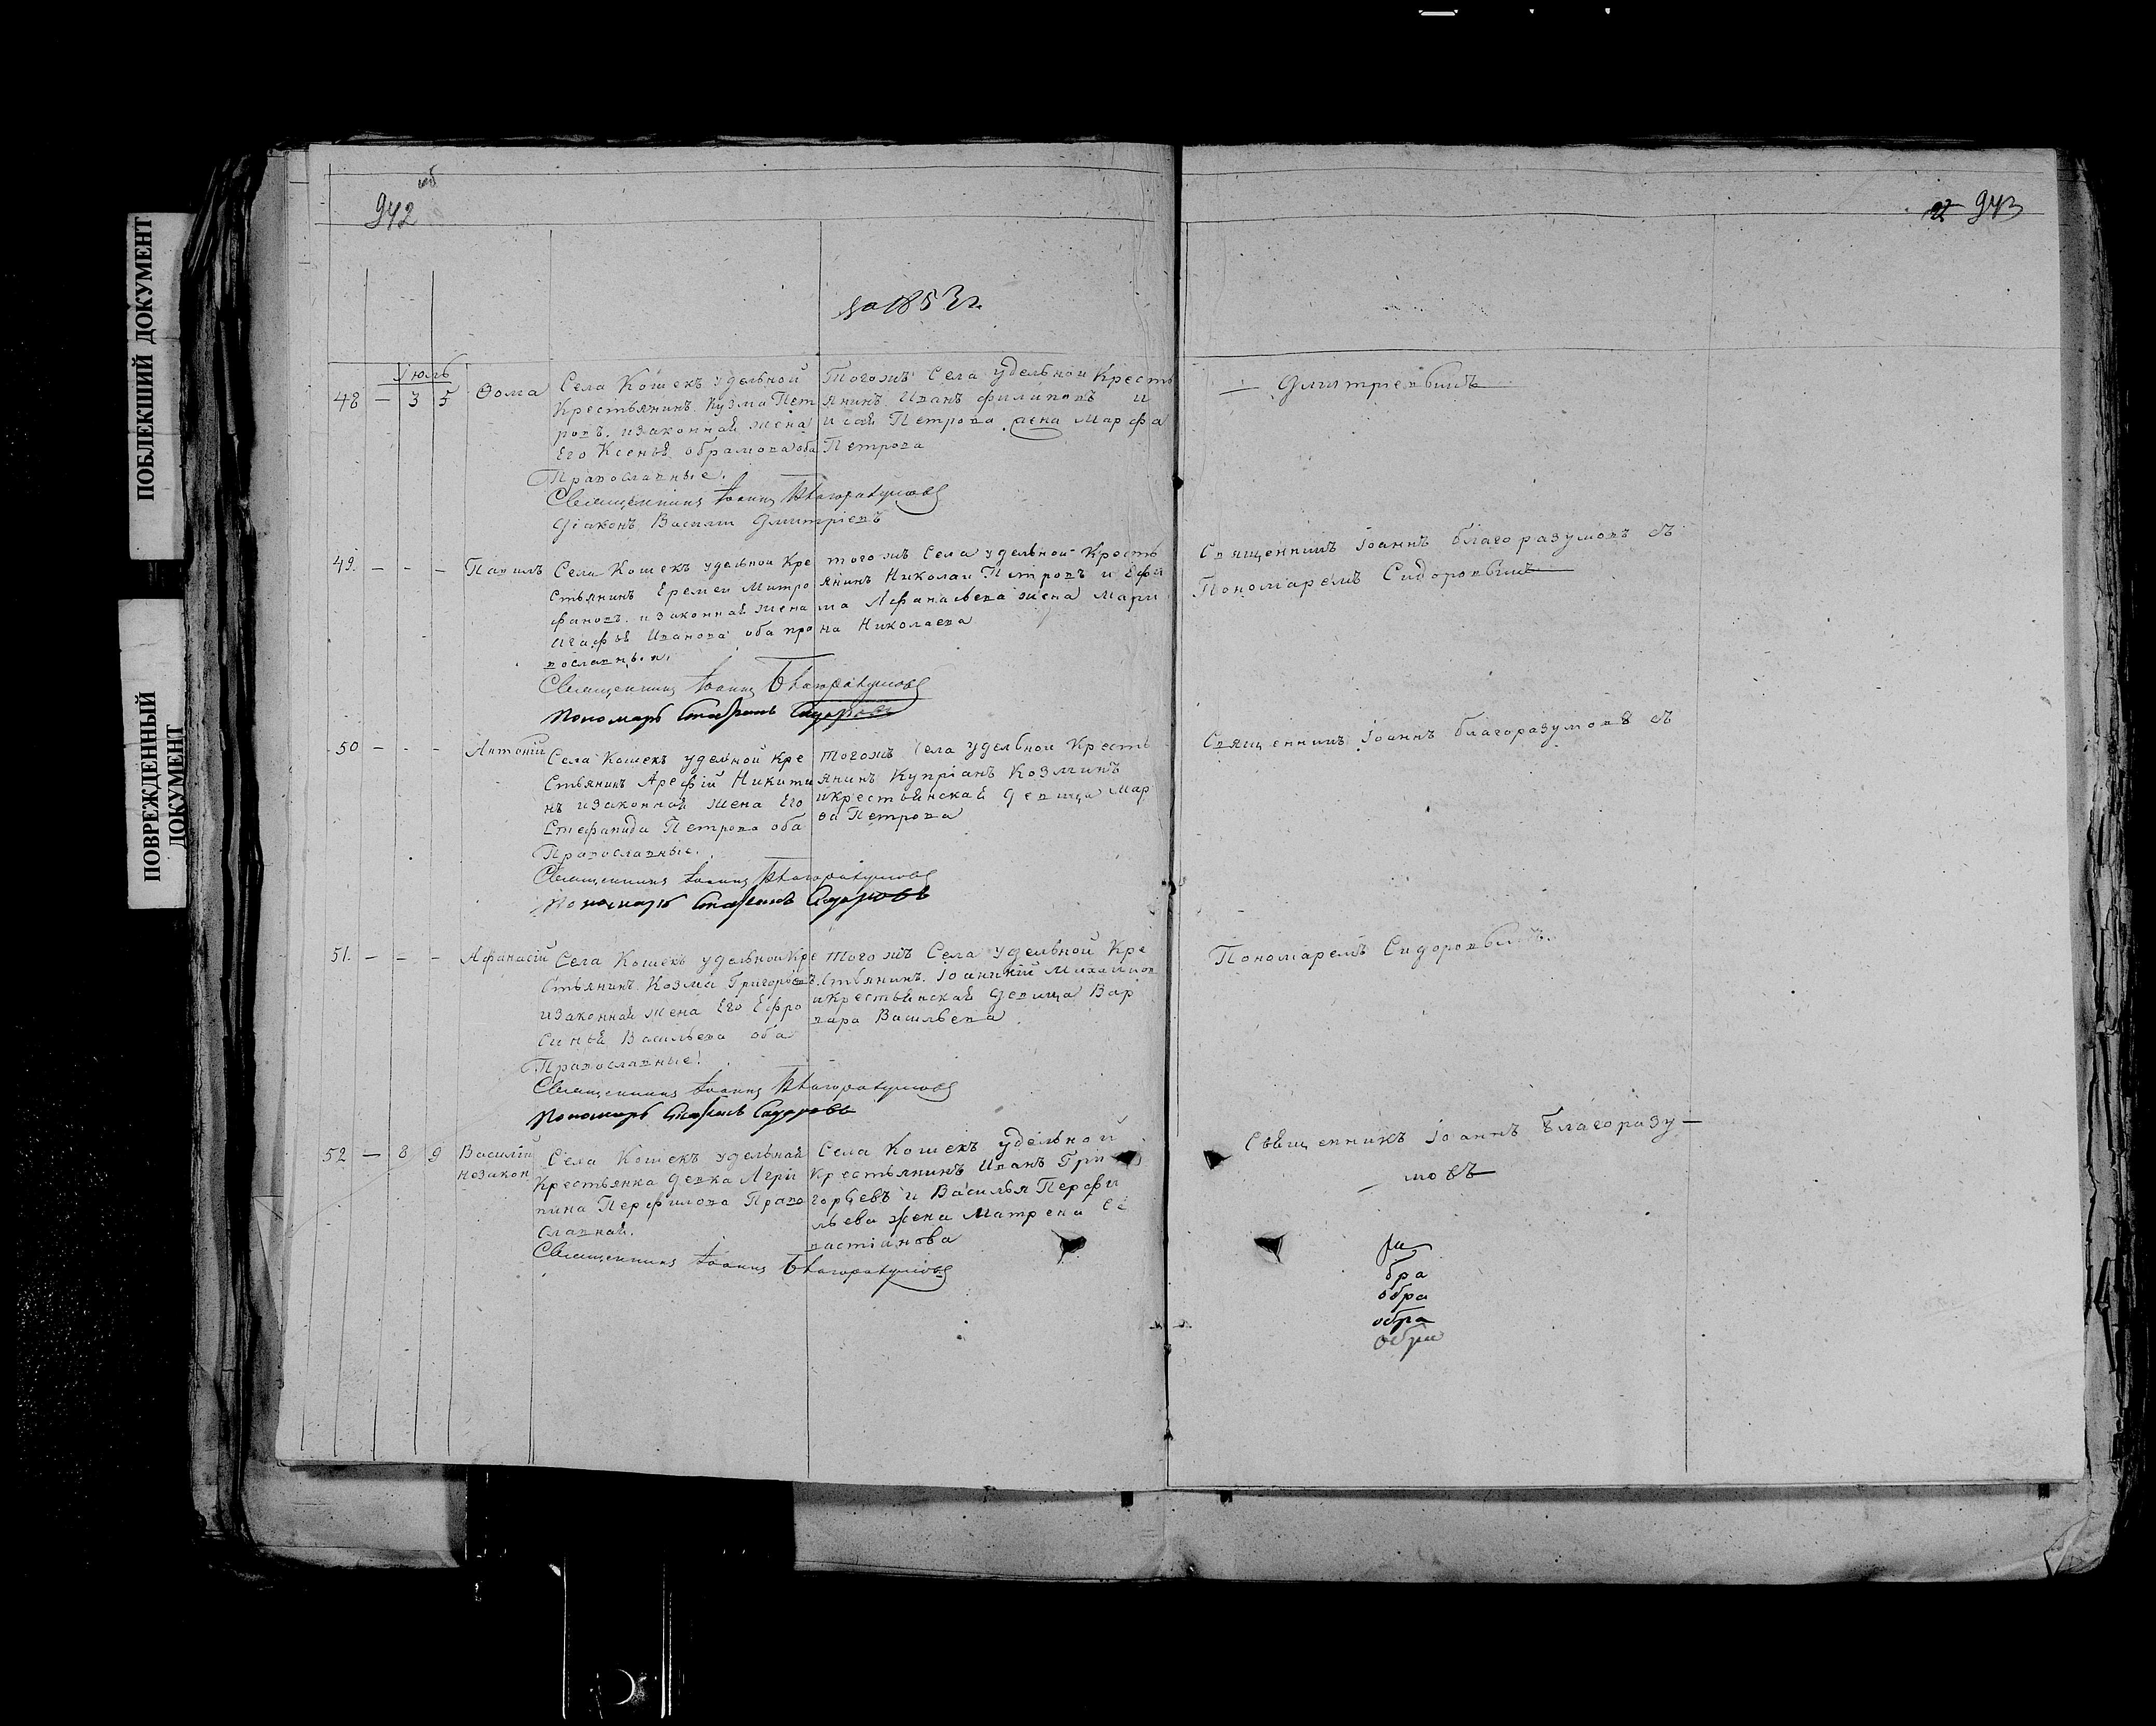 ПОБЛЕКШИЙ ДОКУМЕНТ
ПОВРЕЖДЕННЫЙ
ДОКУМЕНТ
942 об
за 1853 г.
Іюль
48 — 3 5 Ѳома
Села Кошекъ удельной
Крестьянинъ Кузма Пет
ровъ. изаконная жена
Его Ксенья обрамова оба
Православные.
Священникъ Іоаннъ Благоразумовъ
Діаконъ Василий Дмитріевъ
Тогожъ Села удельной Кресть
янинъ Иванъ филиповъ и
Петрова жена Марфа
Петрова
49. — — — Павилъ
Села Кошекъ удельной Кре
стьянинъ Еремеи Митро
фановъ. изаконная жена
Агафья Иванова оба про
вославныи.
Священникъ Іоаннъ Благоразумовъ
Пономарь Стефанъ Сидоровъ
того жъ Села удельной Кресть
янинъ Николаи Петровъ и Ефи
ма Афанасьева жена Мари
на Николаева
50 — — — Антоній
Села Кошекъ удельной Кре
стьянинъ Арефій Никити
нъ изаконная жена Его
Стефанида Петрова оба
Православные.
Священникъ Іоаннъ Благоразумовъ
Пономарь Стефанъ Сидоровъ
Тогожъ Села удельной Кресть
янинъ Купріанъ Козминъ
икрестьянская Девица Мар
ѳа Петрова
51. — — — Афанасій
Села Кошекъ удельной Кре
стьянинъ Козма Григорьевъ
изаконная жена Его Ефро
синья Васильева оба
Православные!
Священникъ Іоаннъ Благоразумовъ
Пономарь Стефанъ Сидоровъ
Того жъ Села удельной Кре
стьянинъ. Іоаникій Михаилов
икрестьянская Девица Вар
вара Васильева
52 — 8 9 Василій
незакон
Села Кошекъ удельная
Крестьянка девка Агри
пина Перфилова Право
славная.
Священникъ Іоаннъ Благоразумовъ
Села Кошекъ удельной
Крестьянинъ Иванъ Гри
горьевъ и Василья Перфи
льева жена Матрена Се
вастіанова
943
— Дмитріевымъ
Священникъ Іоаннъ благоразумовъ съ
Пономаремъ Сидоровымъ
Священникъ Іоаннъ благоразумовъ съ
Пономаремъ Сидоровымъ.
Священникъ Іоаннъ Благоразу—
мовъ
ра
бра
обра
обра
обра